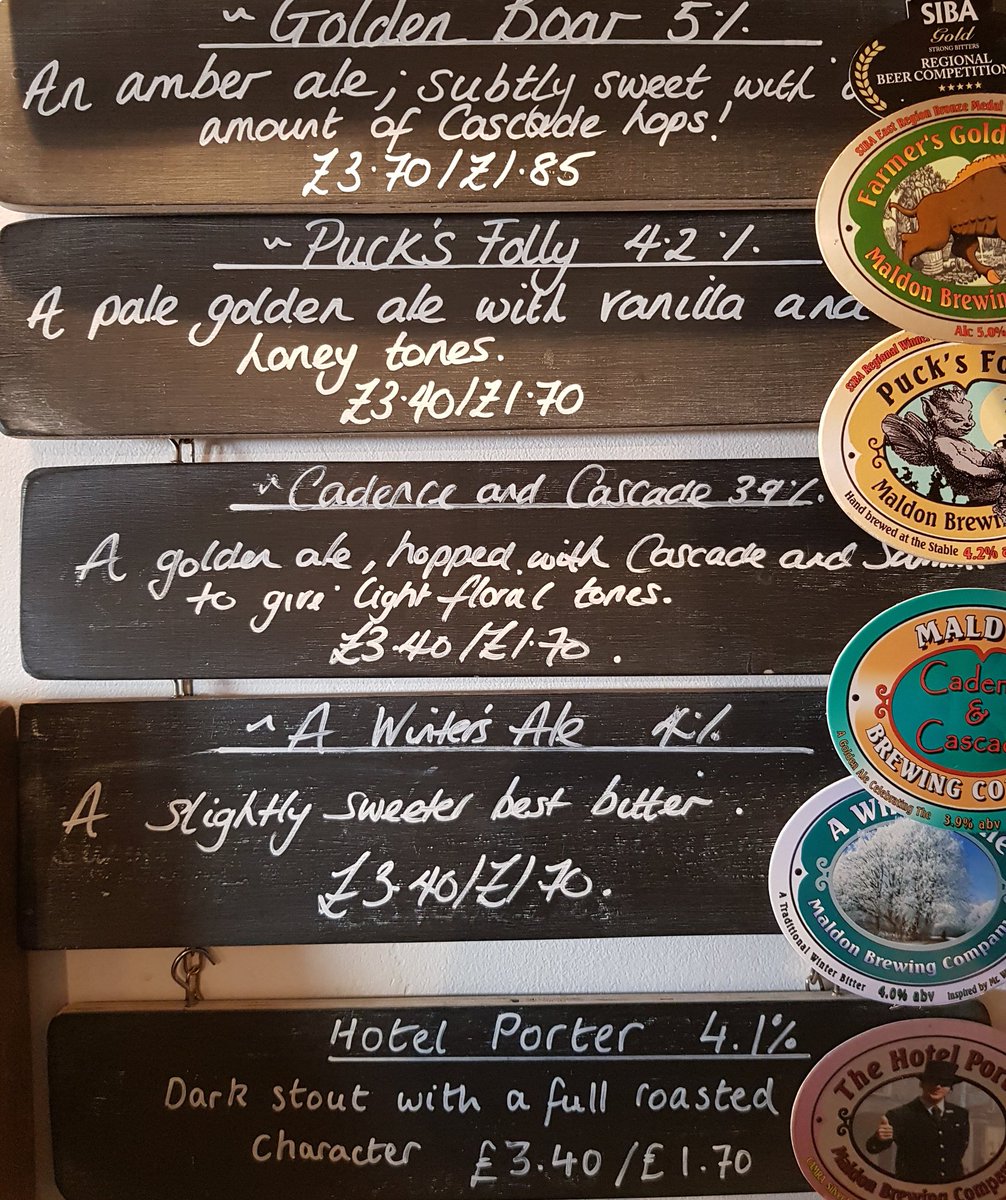 ~ Golden Boar 5%
An amber ale; subtly sweet with
amount of Cascade hops!
£3.70/£1.85
~ Puck's Folly 4.2%
A pale golden ale with vanilla and
honey tones.
£3.40/£1.70
~ Cadence and Cascade 3.9%.
A golden ale, hopped with Cascade and
to give light floral tones.
£3.40/£1.70.
~ A Winter's Ale 4%
A slightly sweeter best bitter.
£3.40/£1.70.
Hotel Porter 4.1%
Dark stout with a full roasted
character £3.40/£1.70
SIBA
Gold
STRONG BITTERS
REGIONAL
BEER COMPETITION
SIBA East Region Bronze Medal
Farmer's Gold
Maldon Brewing
Alc 5.0%
SIBA Regional Winner
Puck's
Maldon Brewing
Hand brewed at the Stable 4.2%
MALD
Caden
&
Casca
BREWING CO
A Golden Ale Celebrating The 3.9% abv
A
Maldon Brewing Company
A Traditional Winter Bitter 4.0% abv Inspired by
The Hotel Por
Maldon Brewing Compa